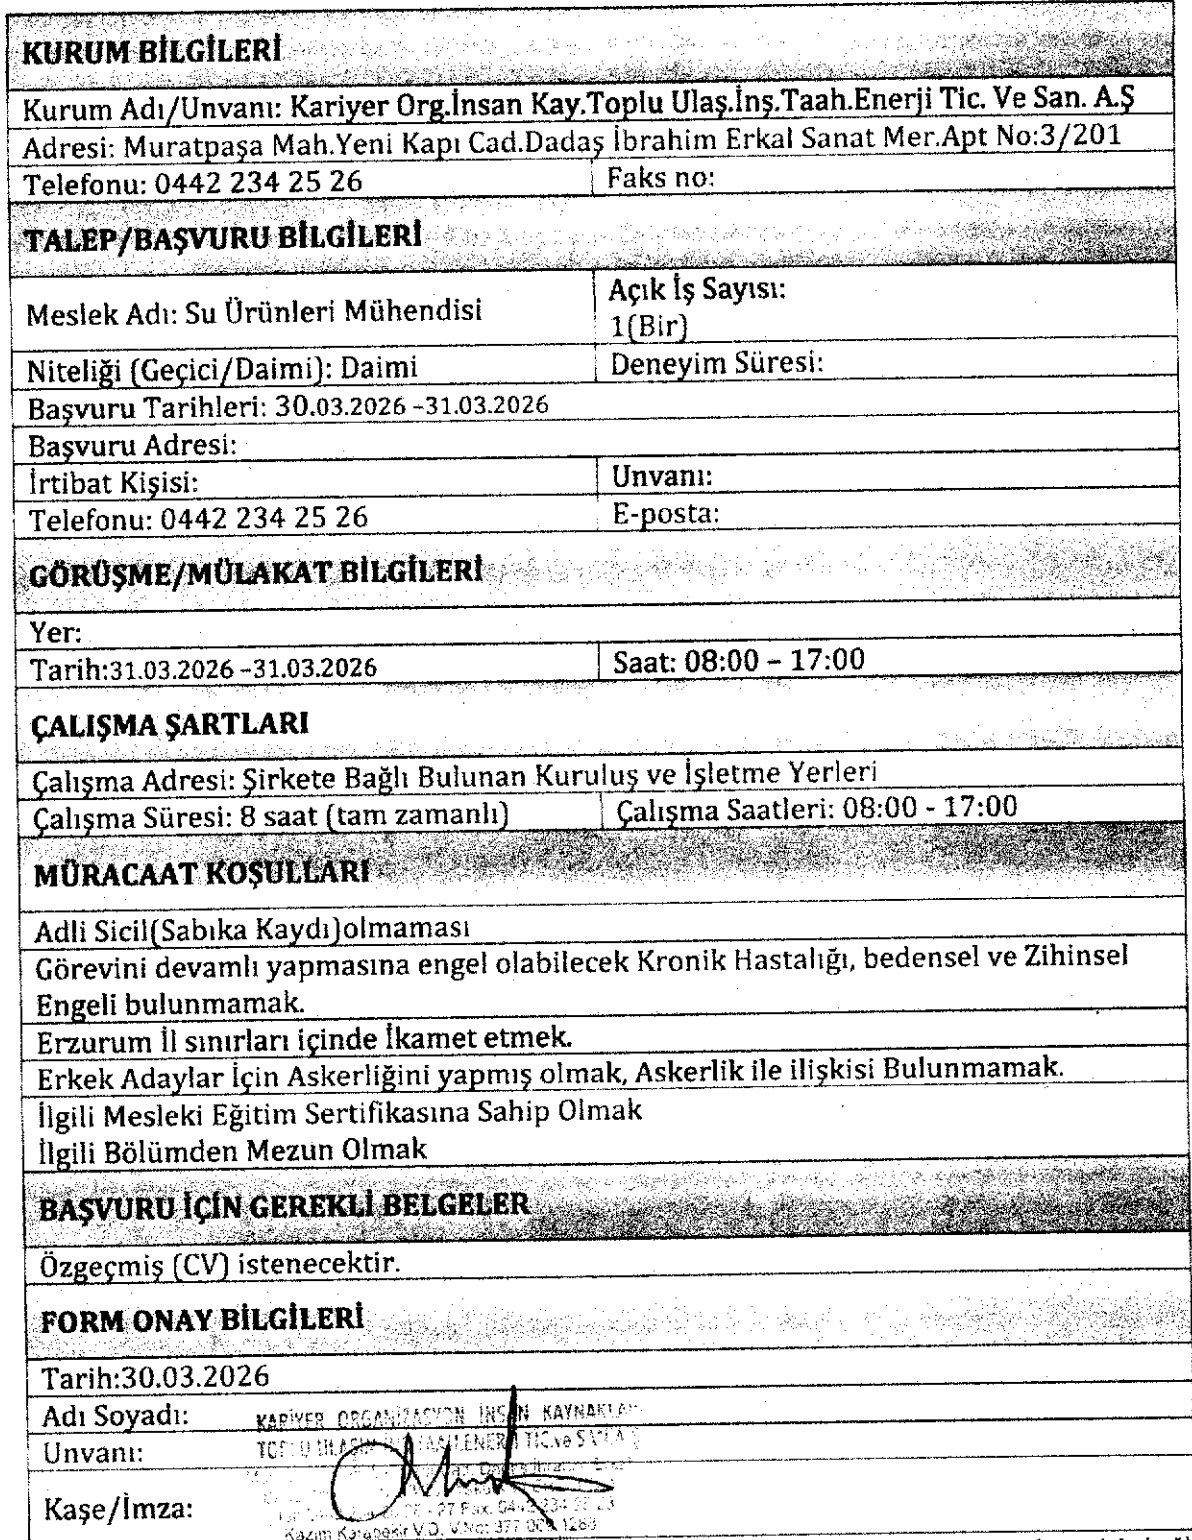 KURUM BİLGİLERİ
Kurum Adı/Unvanı: Kariyer Org.İnsan Kay.Toplu Ulaş.İnş.Taah.Enerji Tic. Ve San. A.Ş
Adresi: Muratpaşa Mah.Yeni Kapı Cad.Dadaş İbrahim Erkal Sanat Mer.Apt No:3/201
Telefonu: 0442 234 25 26
Faks no:
TALEP/BAŞVURU BİLGİLERİ
Meslek Adı: Su Ürünleri Mühendisi
Açık İş Sayısı:
1(Bir)
Niteliği (Geçici/Daimi): Daimi
Deneyim Süresi:
Başvuru Tarihleri: 30.03.2026 -31.03.2026
Başvuru Adresi:
İrtibat Kişisi:
Unvanı:
Telefonu: 0442 234 25 26
E-posta:
GÖRÜŞME/MÜLAKAT BİLGİLERİ
Yer:
Tarih:31.03.2026 -31.03.2026
Saat: 08:00 – 17:00
ÇALIŞMA ŞARTLARI
Çalışma Adresi: Şirkete Bağlı Bulunan Kuruluş ve İşletme Yerleri
Çalışma Süresi: 8 saat (tam zamanlı)
Çalışma Saatleri: 08:00 - 17:00
MÜRACAAT KOŞULLARI
Adli Sicil(Sabıka Kaydı)olmaması
Görevini devamlı yapmasına engel olabilecek Kronik Hastalığı, bedensel ve Zihinsel
Engeli bulunmamak.
Erzurum İl sınırları içinde İkamet etmek.
Erkek Adaylar İçin Askerliğini yapmış olmak, Askerlik ile ilişkisi Bulunmamak.
İlgili Mesleki Eğitim Sertifikasına Sahip Olmak
İlgili Bölümden Mezun Olmak
BAŞVURU İÇİN GEREKLİ BELGELER
Özgeçmiş (CV) istenecektir.
FORM ONAY BİLGİLERİ
Tarih:30.03.2026
Adı Soyadı:
KARİYER ORGANİZASYON İNSAN
Unvanı:
Kaşe/İmza:
Kazım Karabekir V.D. V.No: 377